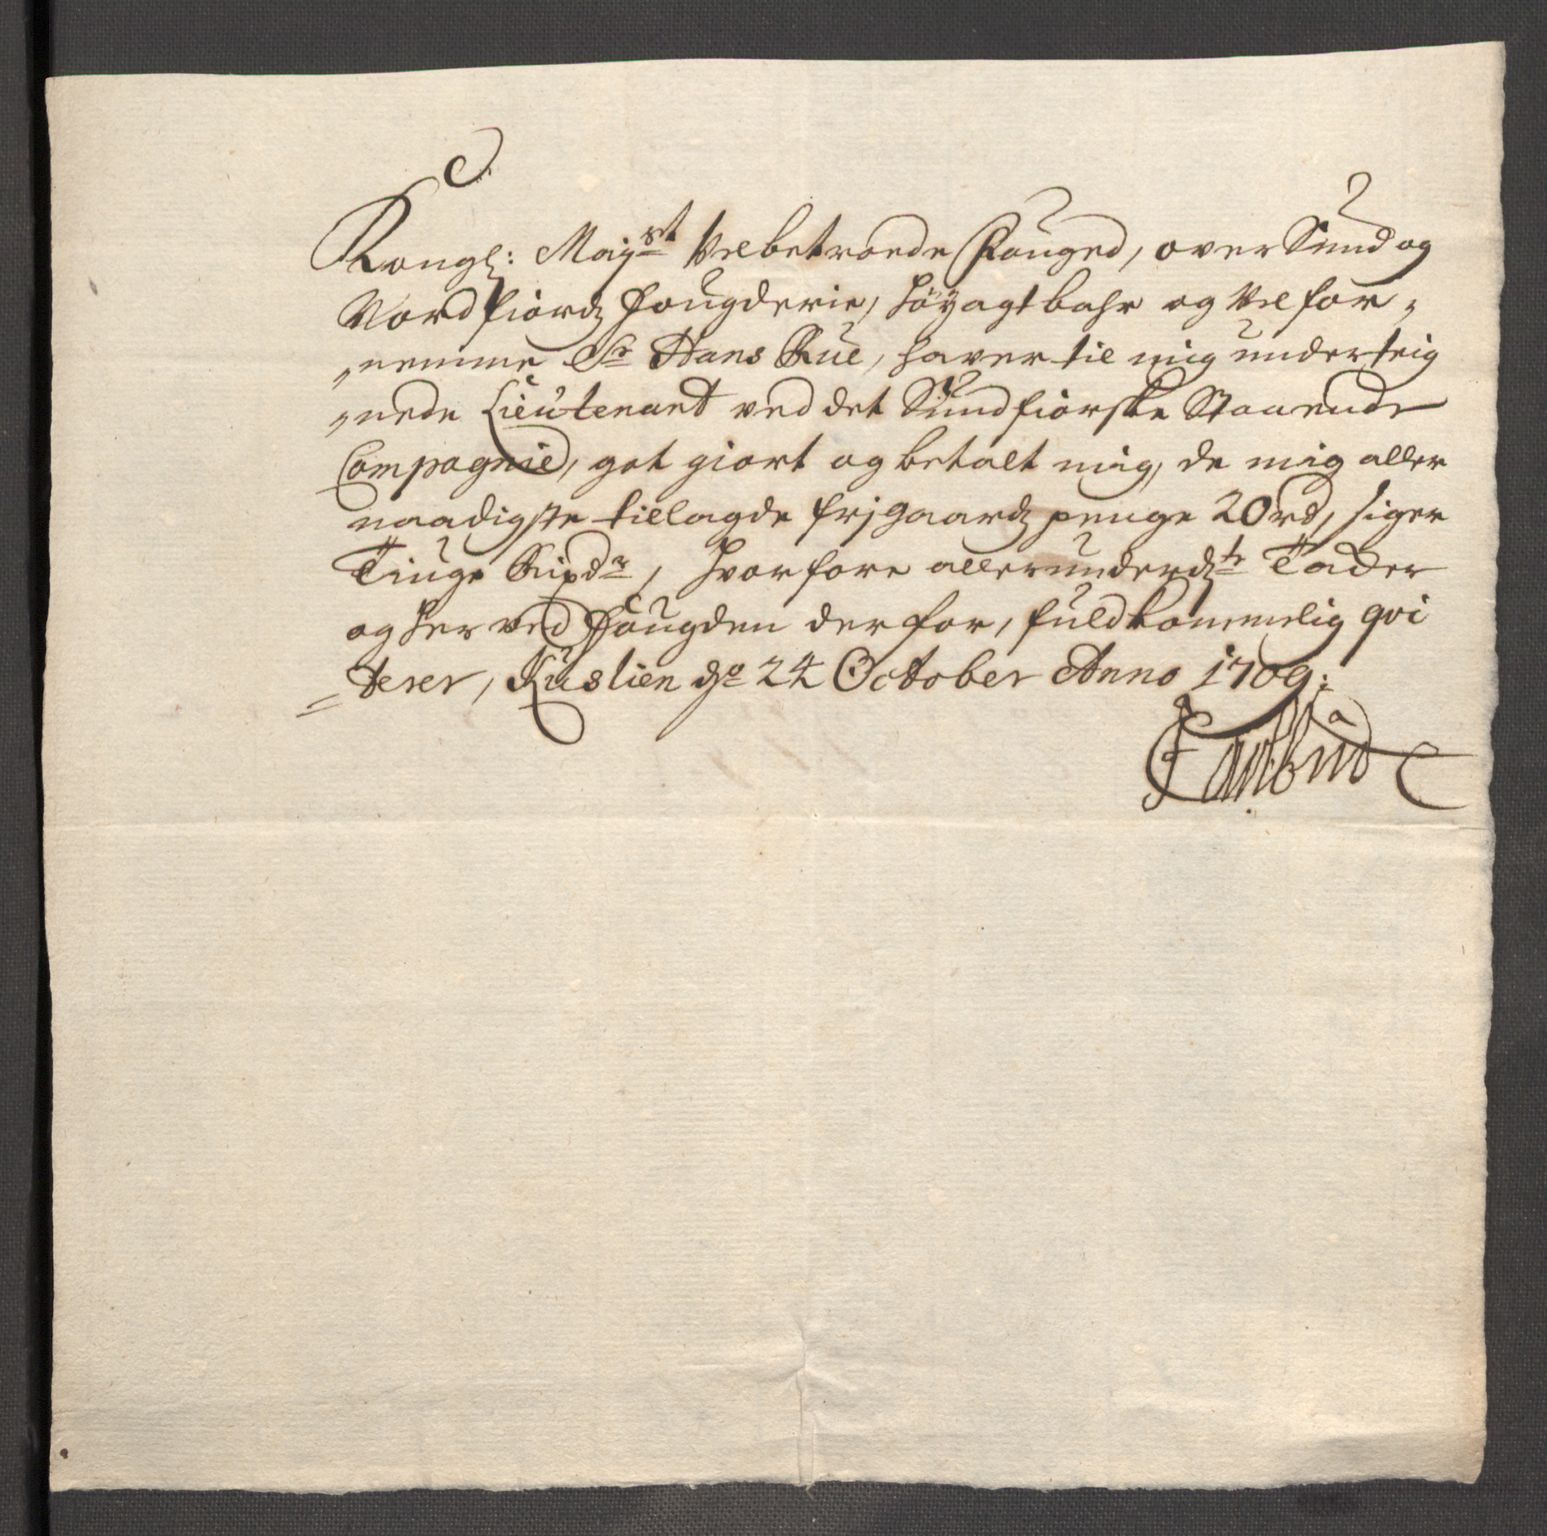 Kongl: Maysts Velbetroede Fouged, over Sund og
Nordfiords fougderie, høyagtbahr og Velfor„
„nemme Sr Hans Rue, haver til mig underteig
„nede Lieutenant ved det Sundfiorske Staaende
Compagnie, got giort og betalt mig, de mig aller
naadigste tillagde frjgaards penge 20 rd, siger
Tiuge Rixdr, hvorfore allerunderdste Tacker
og her ved fougden derfor, fuldkommelig qvi
=terer, Kuslien do 24 October Anno 1709: